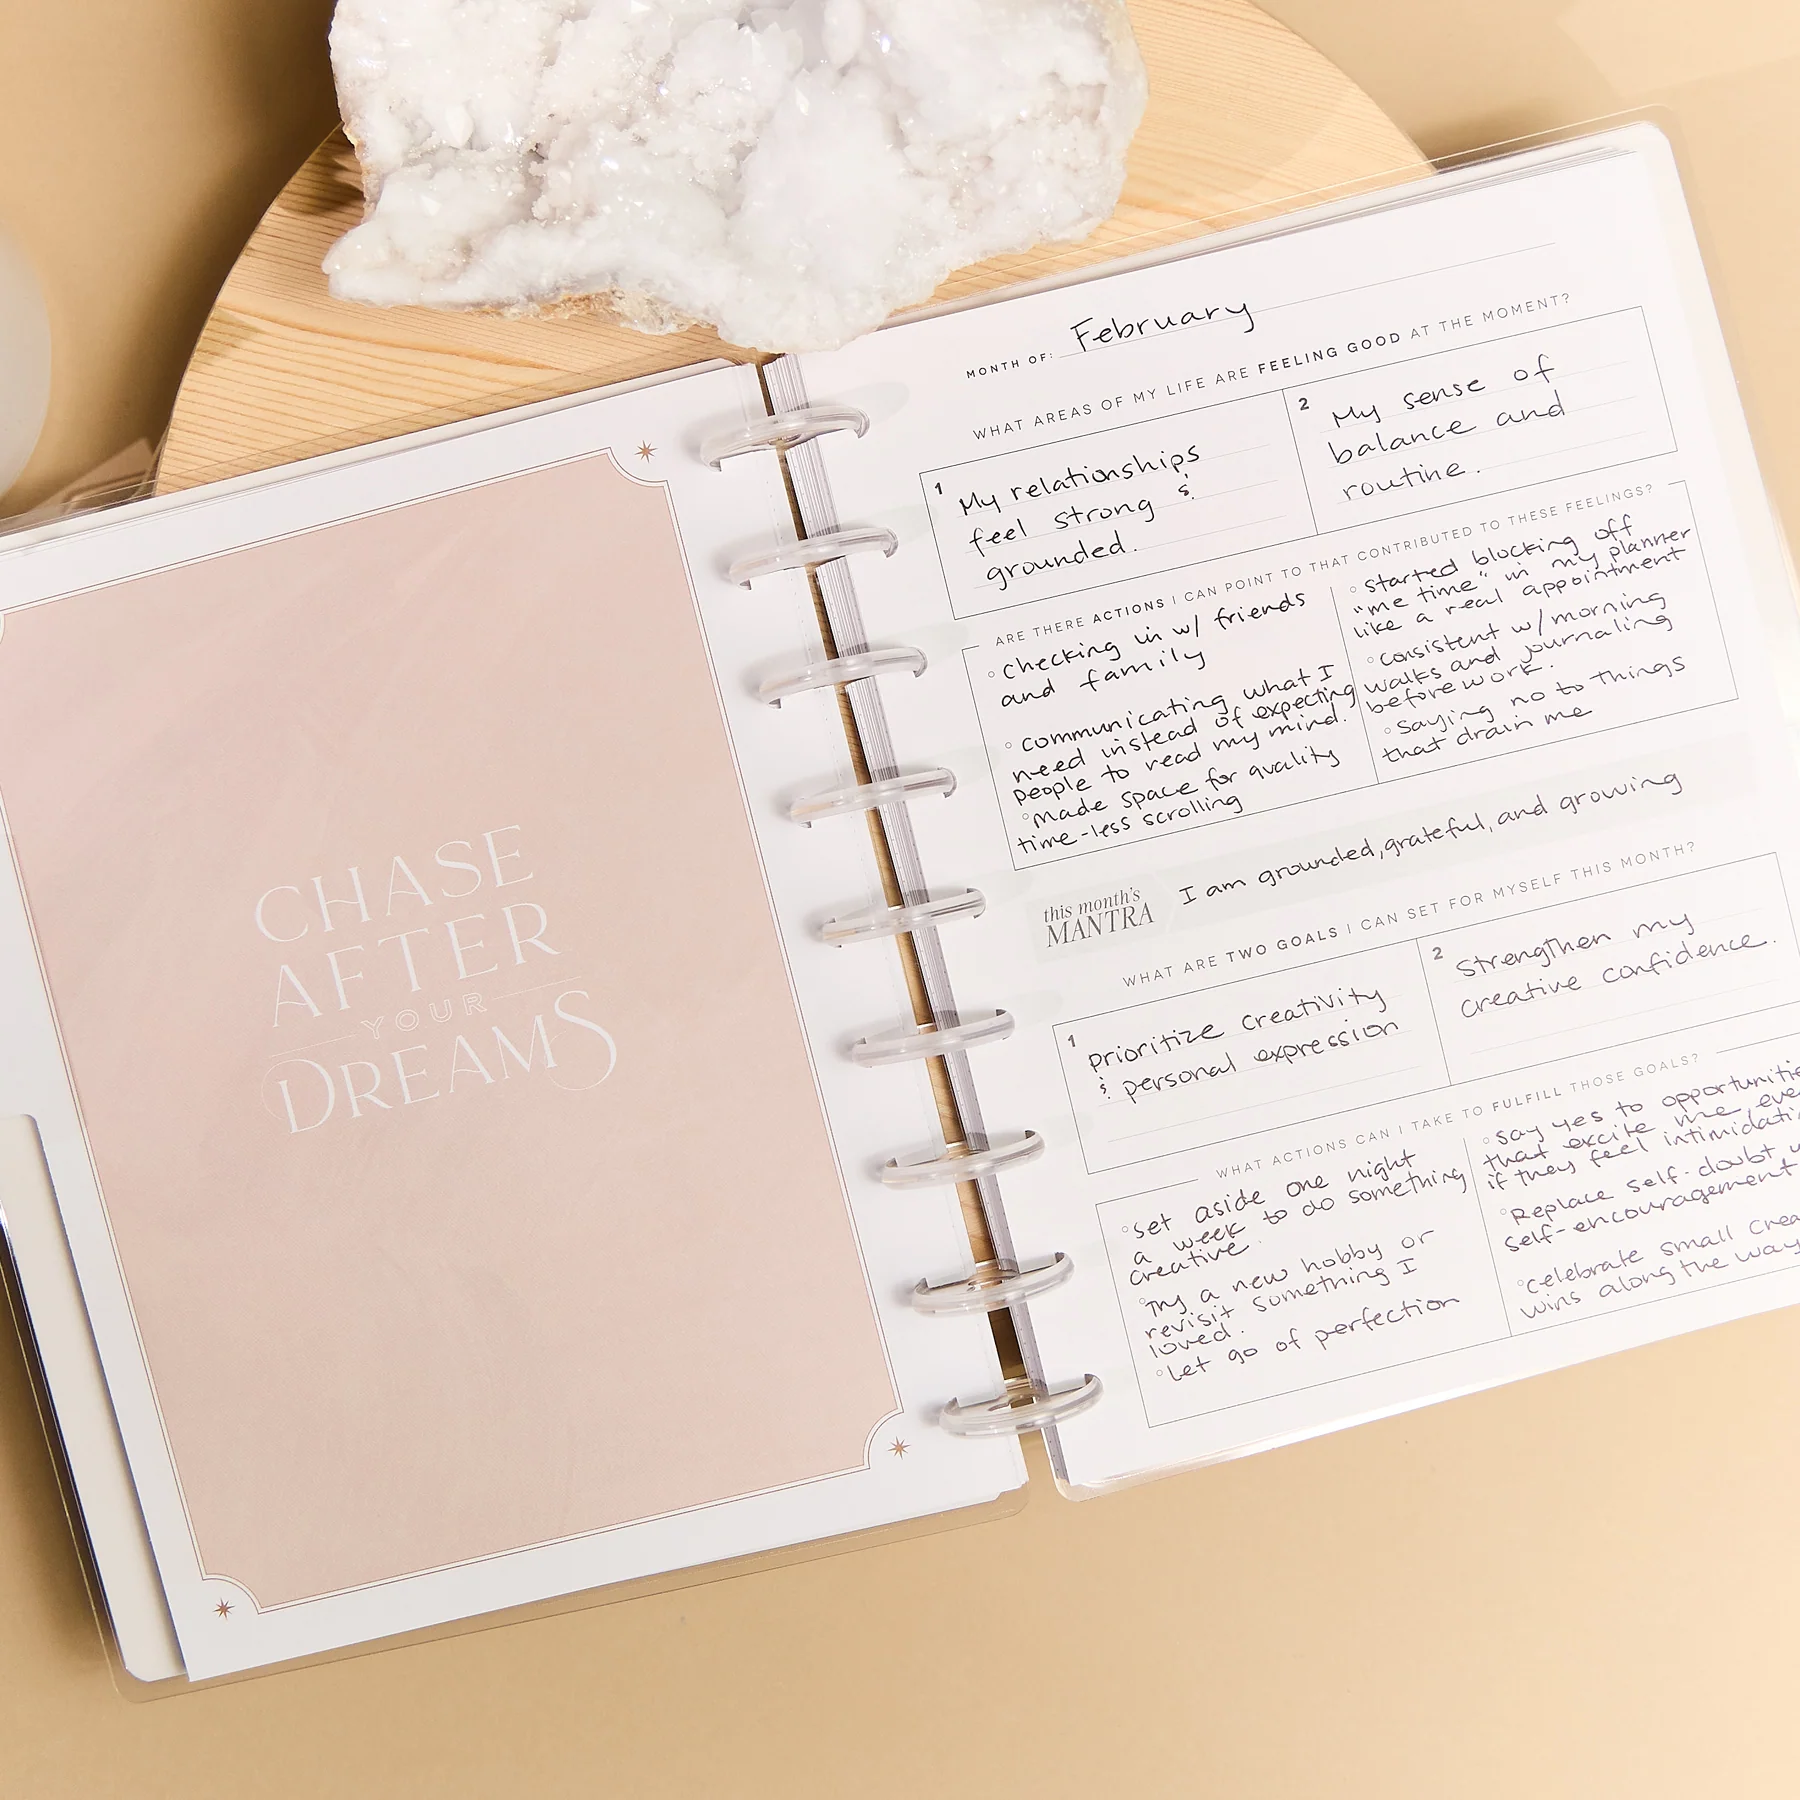 CHASE
AFTER
YOUR
DREAMS
MONTH OF: February
WHAT AREAS OF MY LIFE ARE FEELING GOOD AT THE MOMENT?
1 My relationships
feel strong &
grounded.
2 My sense of
balance and
routine.
ARE THERE ACTIONS I CAN POINT TO THAT CONTRIBUTED TO THESE FEELINGS?
◦ Checking in w/ friends
and family
◦ Communicating what I
need instead of expecting
people to read my mind.
◦ Made space for quality
time-less scrolling
◦ Started blocking off
"me time" in my planner
like a real appointment
◦ Consistent w/morning
walks and journaling
before work.
◦ Saying no to things
that drain me
this month's
MANTRA
I am grounded, grateful, and growing
WHAT ARE TWO GOALS I CAN SET FOR MYSELF THIS MONTH?
1 prioritize creativity
& personal expression
2 Strengthen my
creative confidence.
WHAT ACTIONS CAN I TAKE TO FULFILL THOSE GOALS?
◦ Set aside one night
a week to do something
creative.
◦ Try a new hobby or
revisit something I
loved.
◦ Let go of perfection
◦ Say yes to opportunitie
that excite me, eve
if they feel intimidati
◦ Replace self-doubt w
self-encouragement
◦ Celebrate small crea
wins along the way